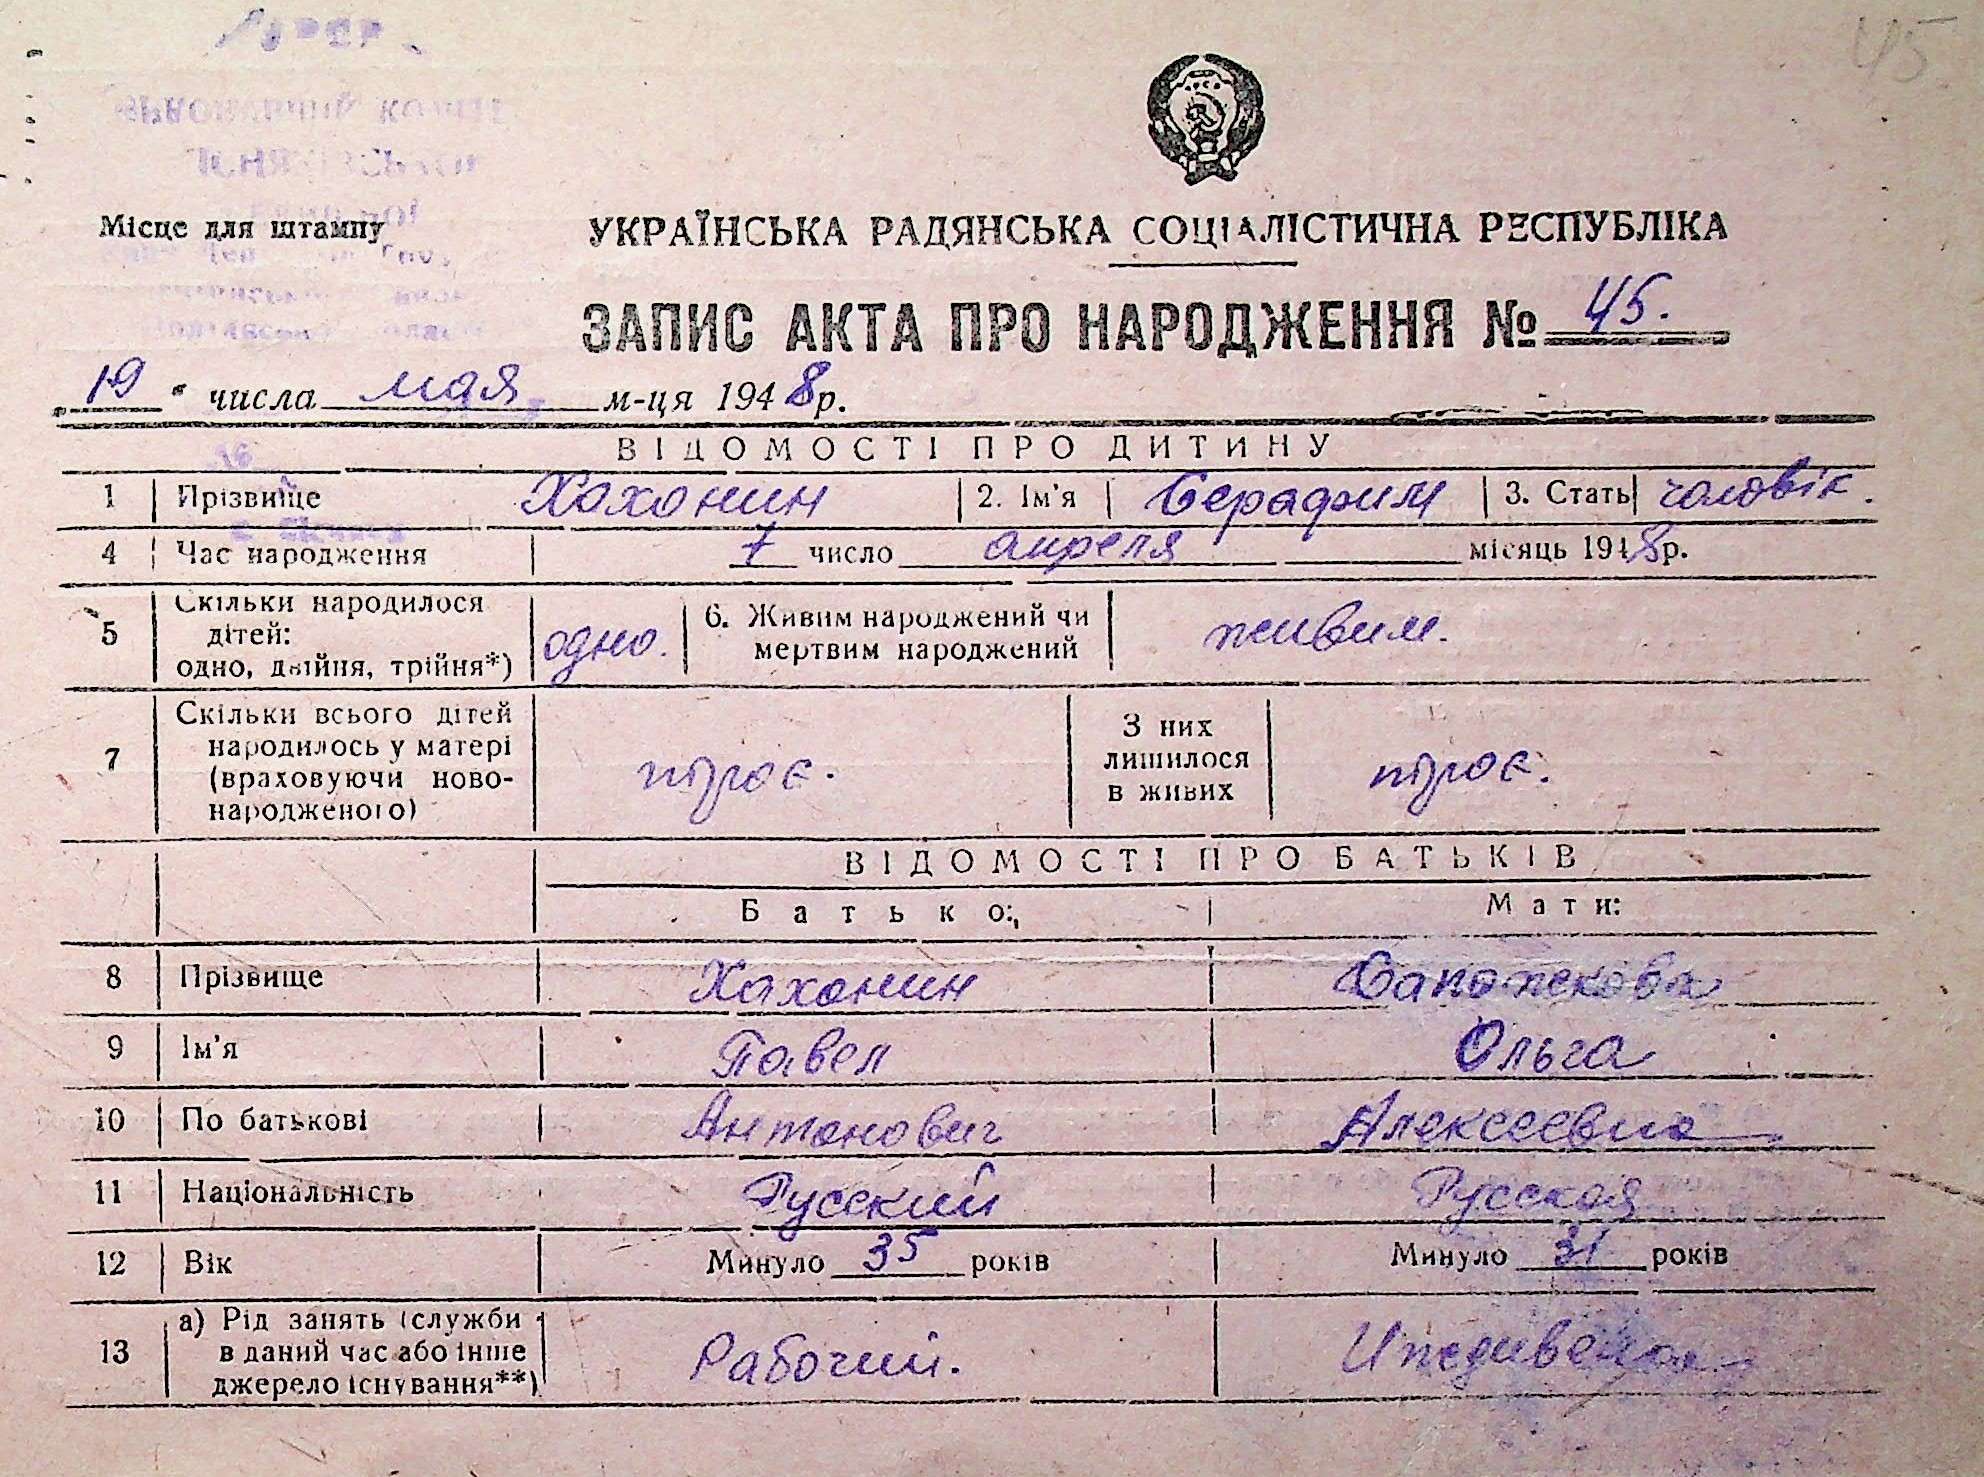 45
Місце для штампу
УКРАЇНСЬКА РАДЯНСЬКА СОЦІАЛІСТИЧНА РЕСПУБЛІКА
ЗАПИС АКТА ПРО НАРОДЖЕННЯ № 45.
19 " числа мая м-ця 1948 р.
ВІДОМОСТІ ПРО ДИТИНУ
1 Прізвище Хахонин 2. Ім'я Серафим 3. Стать чоловік.
4 Час народження 7 число апреля місяць 1948 р.
5 Скільки народилося дітей: одно, двійня, трійня*) одно. 6. Живим народжений чи мертвим народжений живим.
7 Скільки всього дітей народилось у матері (враховуючи ново-народженого) троє. З них лишилося в живих троє.
ВІДОМОСТІ ПРО БАТЬКІВ
Батько: Мати:
8 Прізвище Хахонин Сапожкова
9 Ім'я Павел Ольга
10 По батькові Антонович Алексеевна
11 Національність Русский Русская
12 Вік Минуло 35 років Минуло 31 років
13 а) Рід занять (служби в даний час або інше джерело існування**) Рабочий.